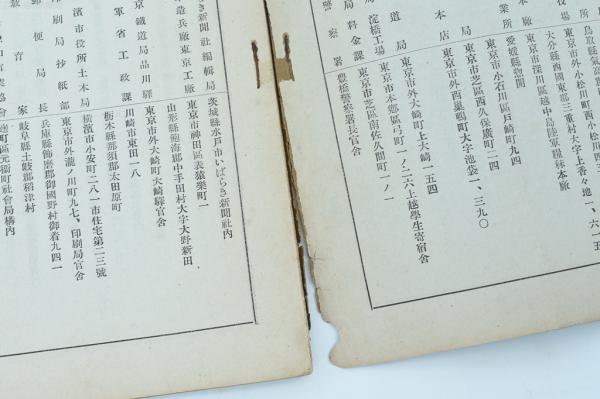 鳥取縣氣高
東京市外小松川町西小松川、六一五
役場
大分縣西國東郡三重村大字上香々地一
本廠
東京市深川區越中島陸軍糧秣本廠
業所
愛媛縣惣開
東京市小石川區戸崎町九四
東京市芝區西久保廣町二四
本店
東京市外西巢鴨町大字池袋一、三九〇
道局
東京市外大崎町上大崎一五四
淀橋工場
東京市本郷區弓町一ノ二六上越學生寄宿舍
局料金課
東京市芝區南佐久間町一ノ一
警察署
豊橋警察署長官舍
き新聞社編輯局
茨城縣水戸市いばらき新聞社內
造兵廠東京工廠
東京市神田區表猿樂町一
山形縣飽海郡中平田村大字大野新田
京鐵道局品川驛
東京市外大崎町大崎驛官舍
軍省工政課
川崎市東田一八
栃木縣那須郡太田原町
濱市役所土木局
橫濱市小安町二八一市住宅第二三號
印刷局抄紙部
東京市外瀧ノ川町九七、印刷局官舍
郵便局長
兵庫縣飾磨郡御國野村御着九四一
教育家
岐阜縣土岐郡稻津村
麴町區元衞町社會局構內